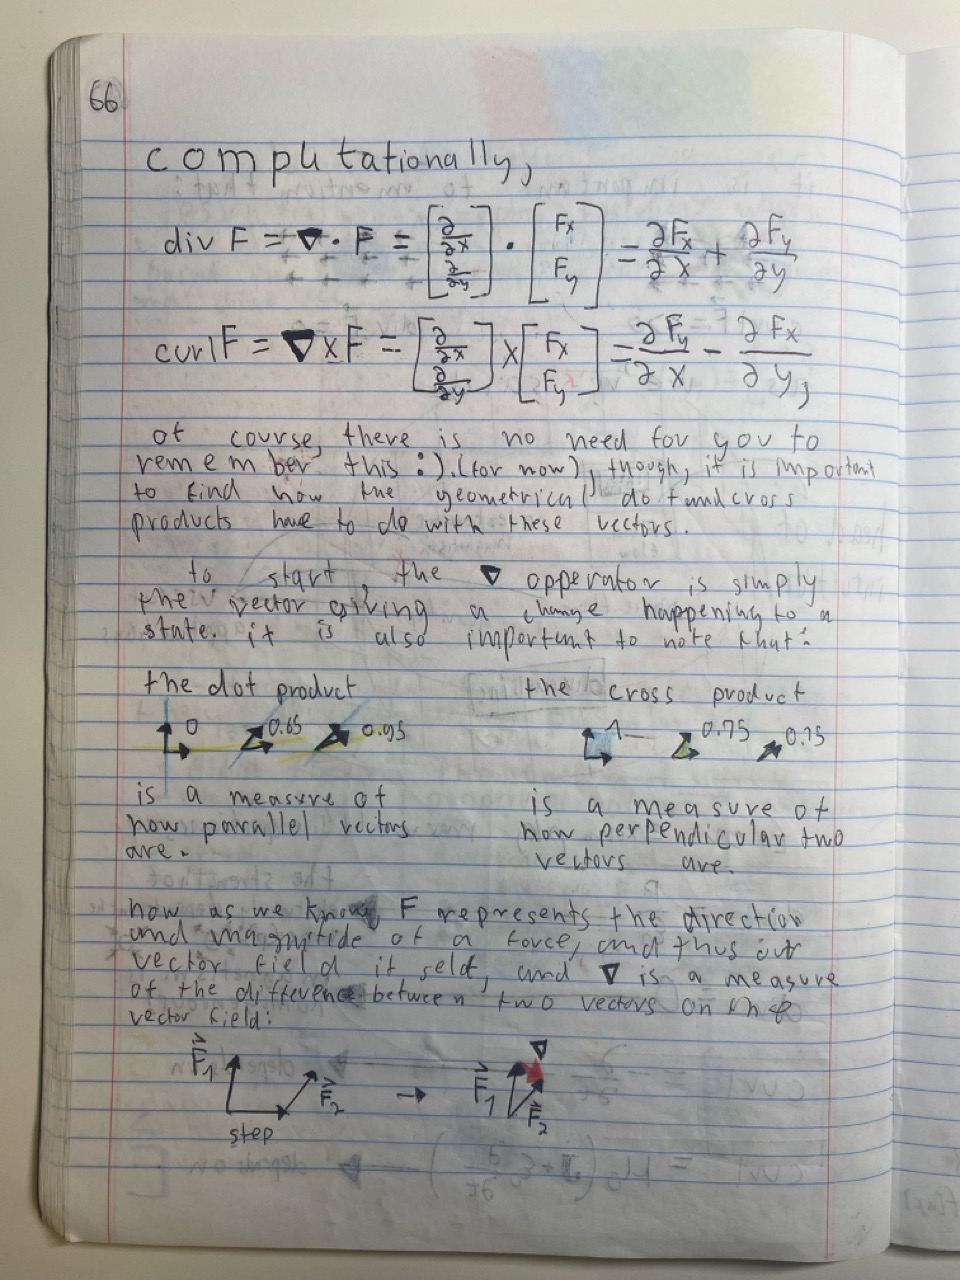 66
computationally,
div F = ∇ · F = [∂/∂x ∂/∂y] · [Fx Fy] = ∂Fx/∂x + ∂Fy/∂y
curl F = ∇ x F = [∂/∂x ∂/∂y] x [Fx Fy] = ∂Fy/∂x - ∂Fx/∂y,
of course, there is no need for you to
remember this :). (for now), though, it is important
to find how the geometrical dot and cross
products have to do with these vectors.
to start, the ∇ opperator is simply
the vector giving a change happening to a
state. it is also important to note that:
the dot product
0 0.65 0.95
is a measure of
how parallel vectors
are.
the cross product
1 0.75 0.15
is a measure of
how perpendicular two
vectors are.
now as we know, F represents the direction
and magnitide of a force, and thus our
vector field it self, and ∇ is a measure
of the difference between two vectors on the
vector field:
F⃗1 F⃗2 → F⃗1 ∇ F⃗2
step